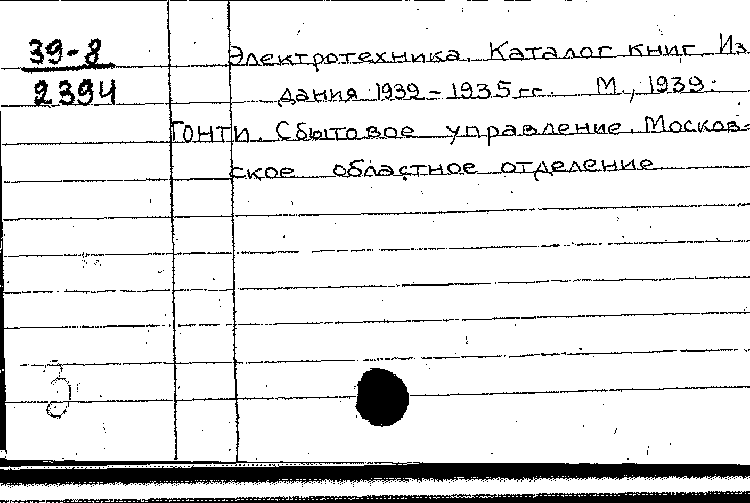 39-8
2394
Электротехника. Каталог книг. Из
дания 1939-1935 гг. М., 1939.
ГОНТИ. Сбытовое управление. Москов-
ское областное отделение
З